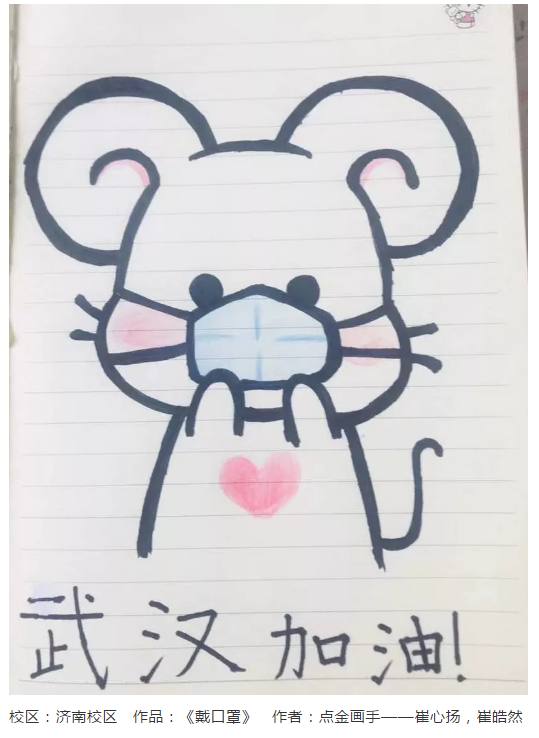 武汉加油!
校区：济南校区 作品：《戴口罩》 作者：点金画手——崔心扬，崔皓然